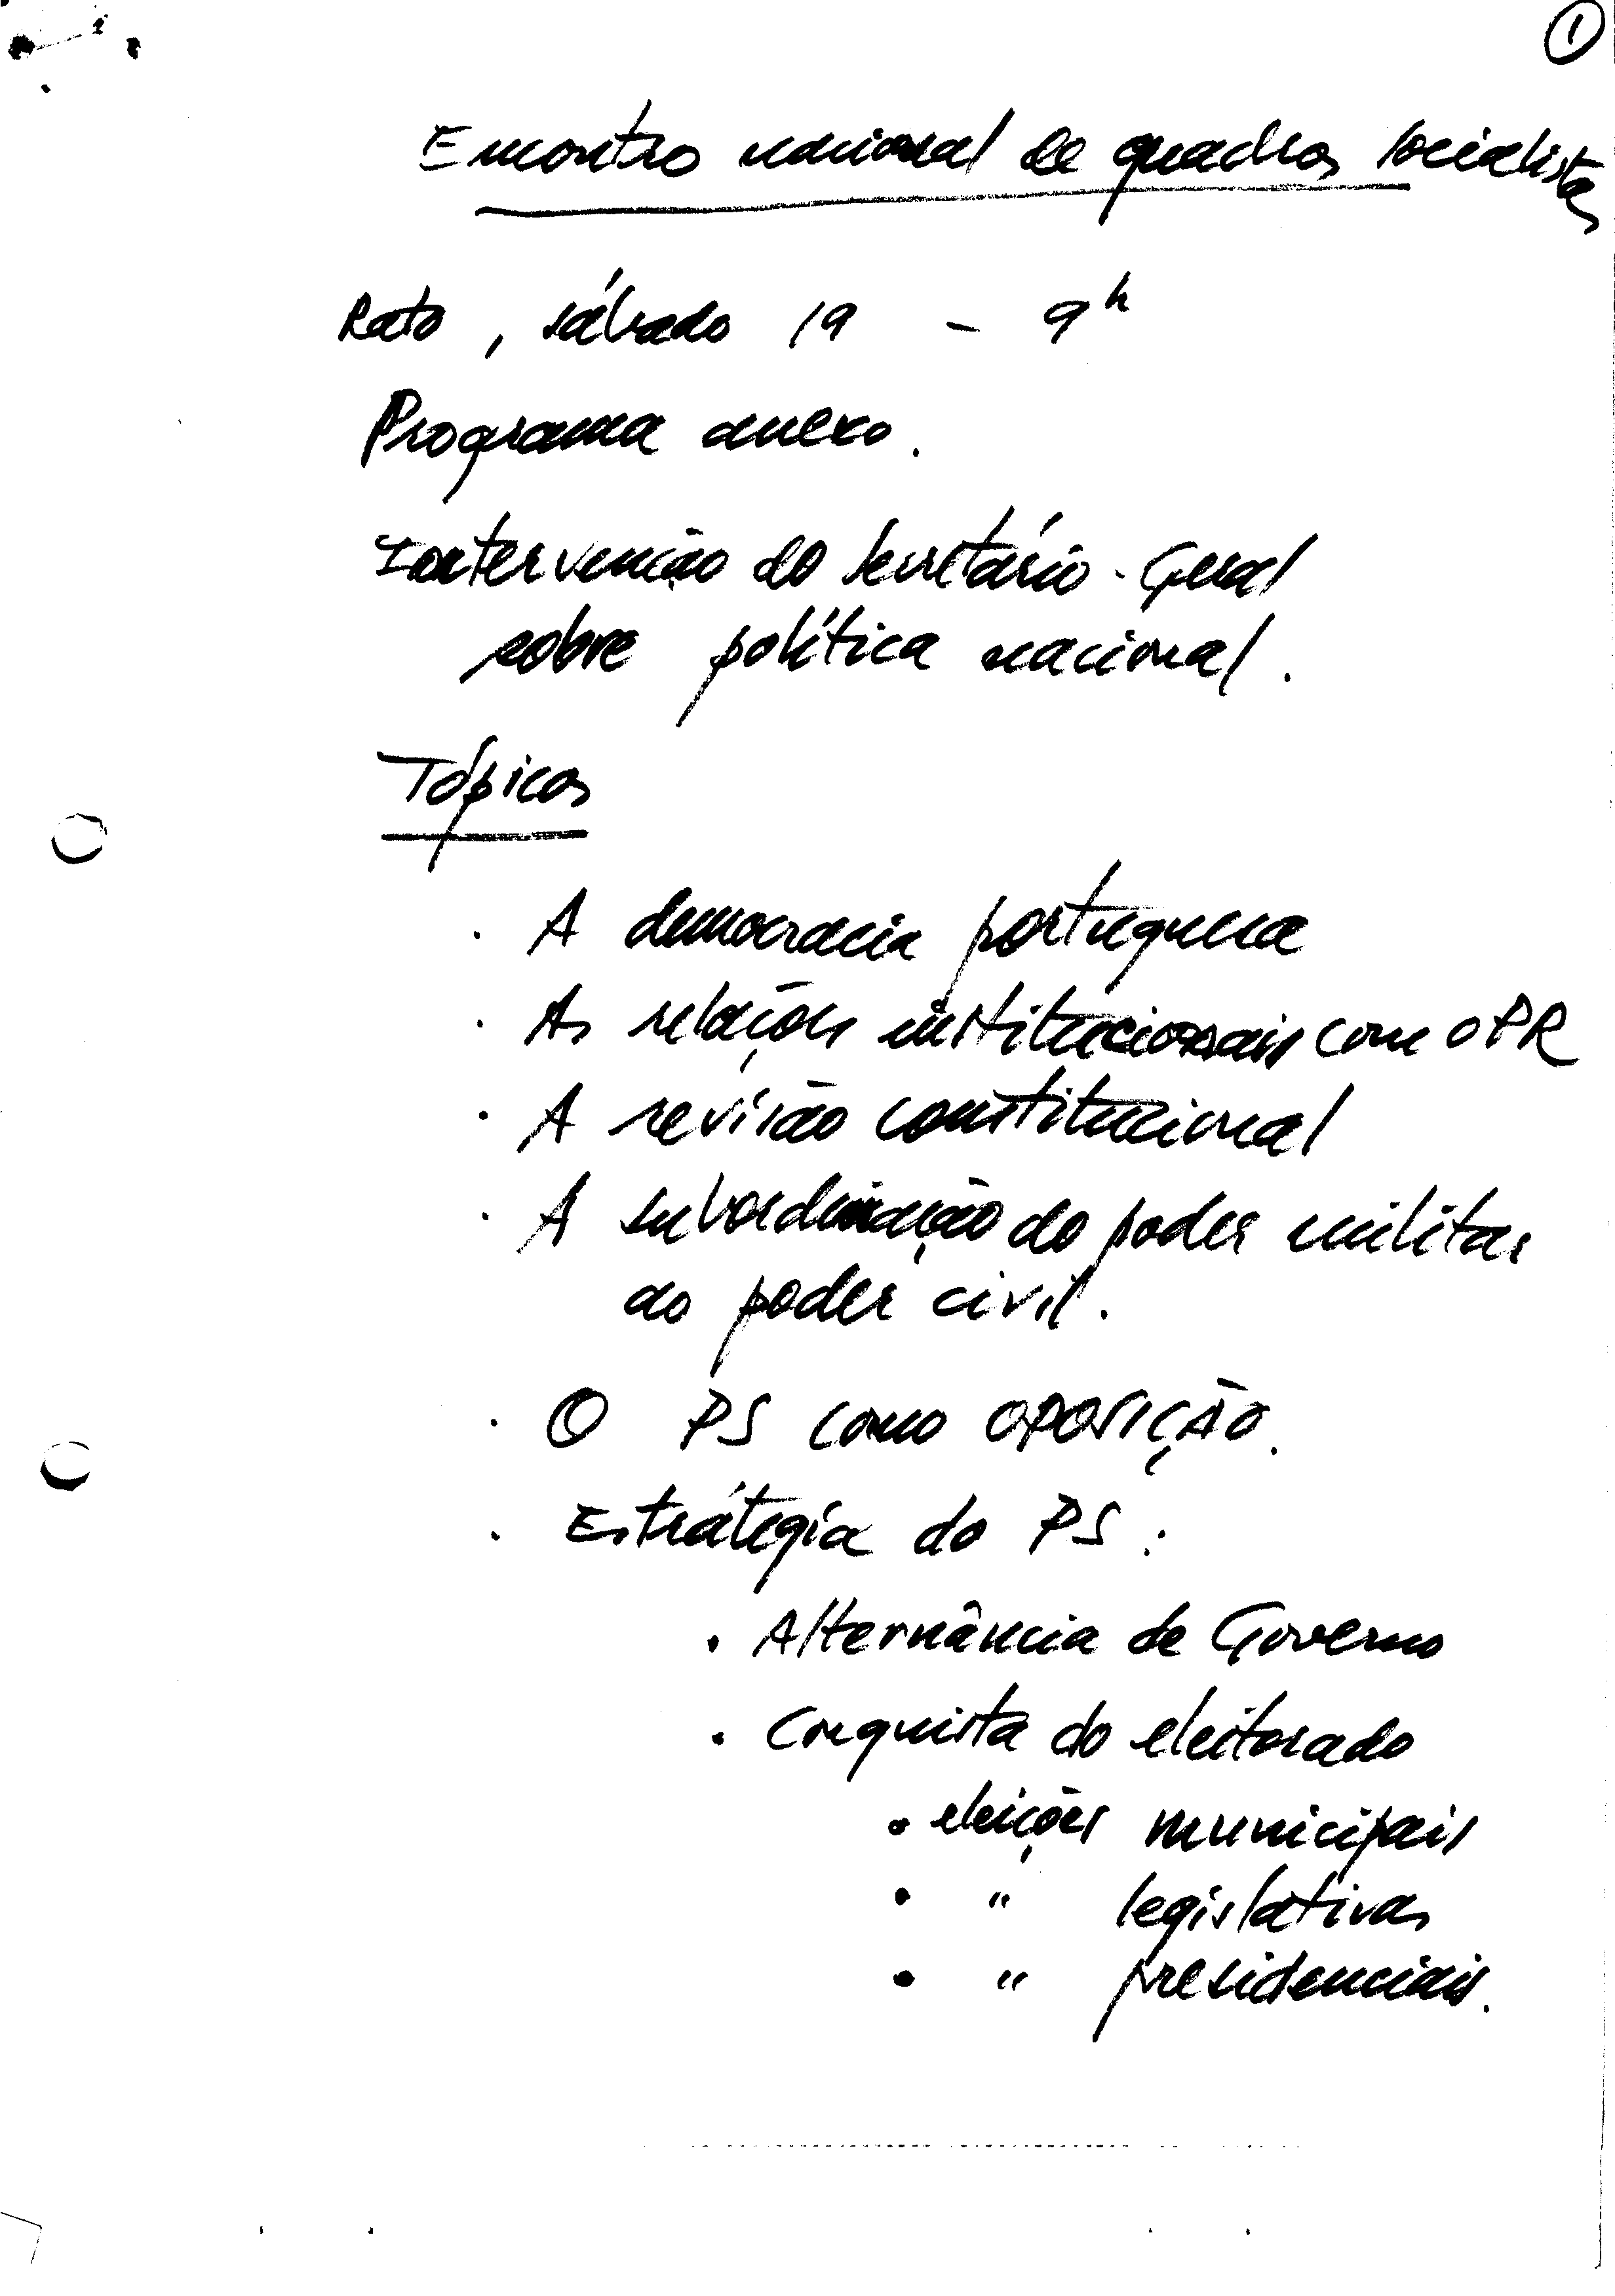 1
Encontro nacional de quadros socialistas
Rato, sábado 19 - 9h
Programa anexo.
Intervenção do Secretário-Geral
sobre política nacional.
Tópicos
. A democracia portuguesa
. As relações institucionais com o PR
. A revisão constitucional
. A subordinação do poder militar
ao poder civil.
. O PS como OPOSIÇÃO.
. Estrátegia do PS:
. Alternância de Governo
. Conquista do eleitorado
• eleições municipais
• " legislativas
• " presidenciais.